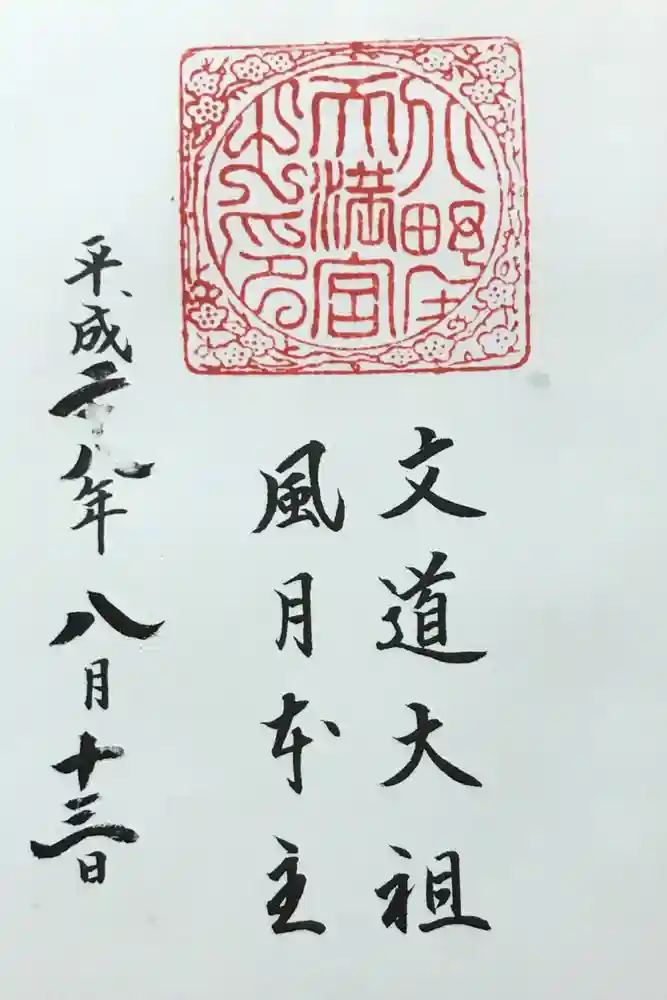 野
天満宮
文道大祖
風月本主
平成二十八年八月十三日